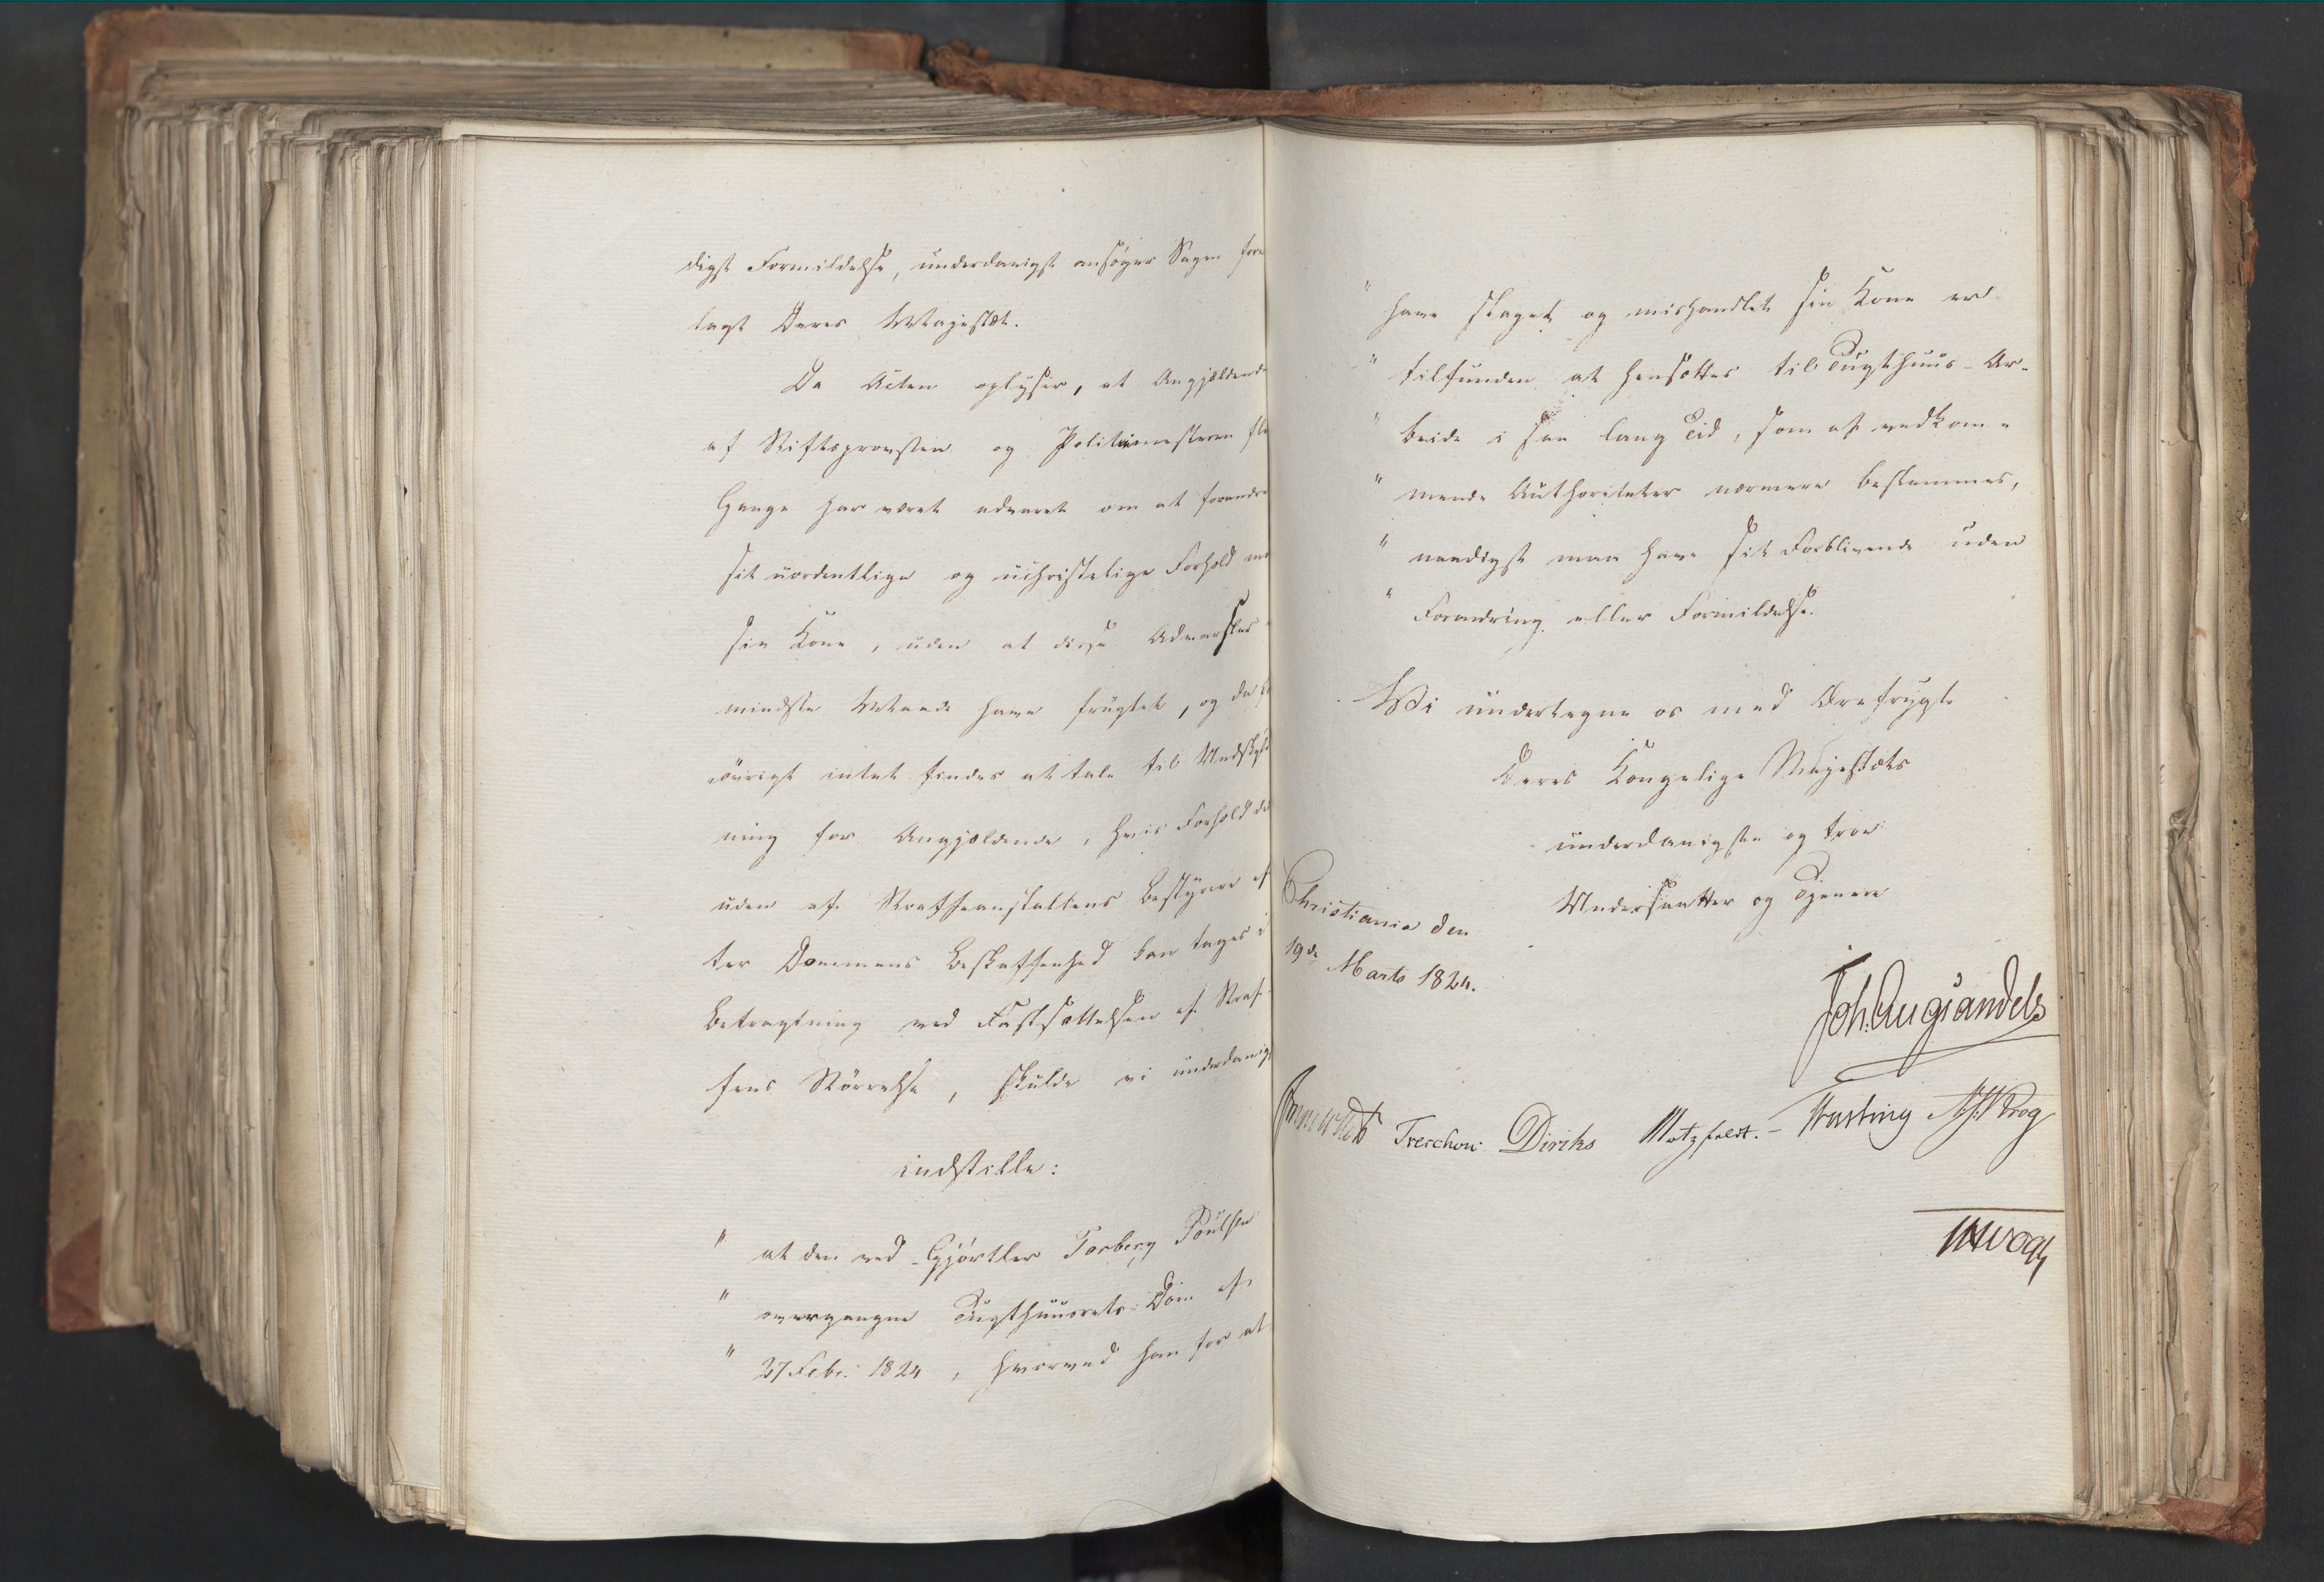 digst Formildelse, underdanigst ansøges Sagen fore
lagt Deres Majestæt.
Da Acten oplyser, at Angjældende
af Stiftsprovsten og Politimesteren fle
Gange har været advaret om at forandre
sit uordentlige og uchristelige Forhold mo
sin Kone, uden at disse Advarsler
mindste Maade have frugtet, og da
iøvrigt intet findes at tale til Undskyld
ning for Angjældende, hvis Forhold des
uden af Straffeanstaltens Bestyrere ef
ter Dommens Beskaffenhed kan tages i
Betragtning ved Fastsættelsen af Straf
fens Størrelse, skulde vi underdanigst
indstille:
" at den ved Gjørtler Torberg Poulsen
" overgangne Tugthuusrets-Dom af
" 27 Febr: 1824, hvorved han for at
" have slaget og mishandlet sin Kone er
" tilfunden at hensættes til Tugthuus-Ar-
" beide i saa lang Tid, som af vedkom-
" mende Authoriteter nærmere bestemmes,
" naadigst maa have sit Forblivende uden
" Forandring eller Formildelse.
Vi undertegne os med Ærefrygt
Deres Kongelige Majestæts
underdanigste og troe
Undersaatter og Tjenere
Christiania den
19de Marts 1824.
Joh. Aug. Sandels
Sommerhielm Treschow Diriks Motzfeldt.- Fasting Krog
Vogt